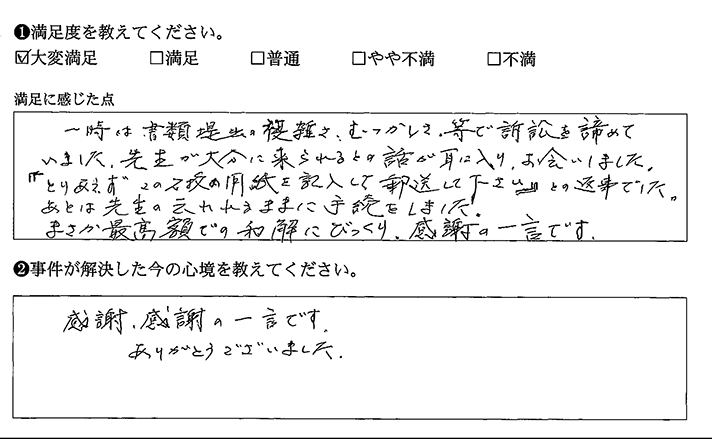 ❶満足度を教えてください。
☑大変満足 □満足 □普通 □やや不満 □不満
満足に感じた点
一時は書類提出の複雑さ、むつかしさ、等で訴訟を諦めて
いました。先生が大分に来られるとの話が耳に入り、お会いしました。
『とりあえずこの2枚の用紙を記入して郵送して下さい』との返事でした。
あとは先生の云われるままに手続をしました。
まさか最高額での和解にびっくり、感謝の一言です。
❷事件が解決した今の心境を教えてください。
感謝、感謝の一言です。
ありがとうございました。